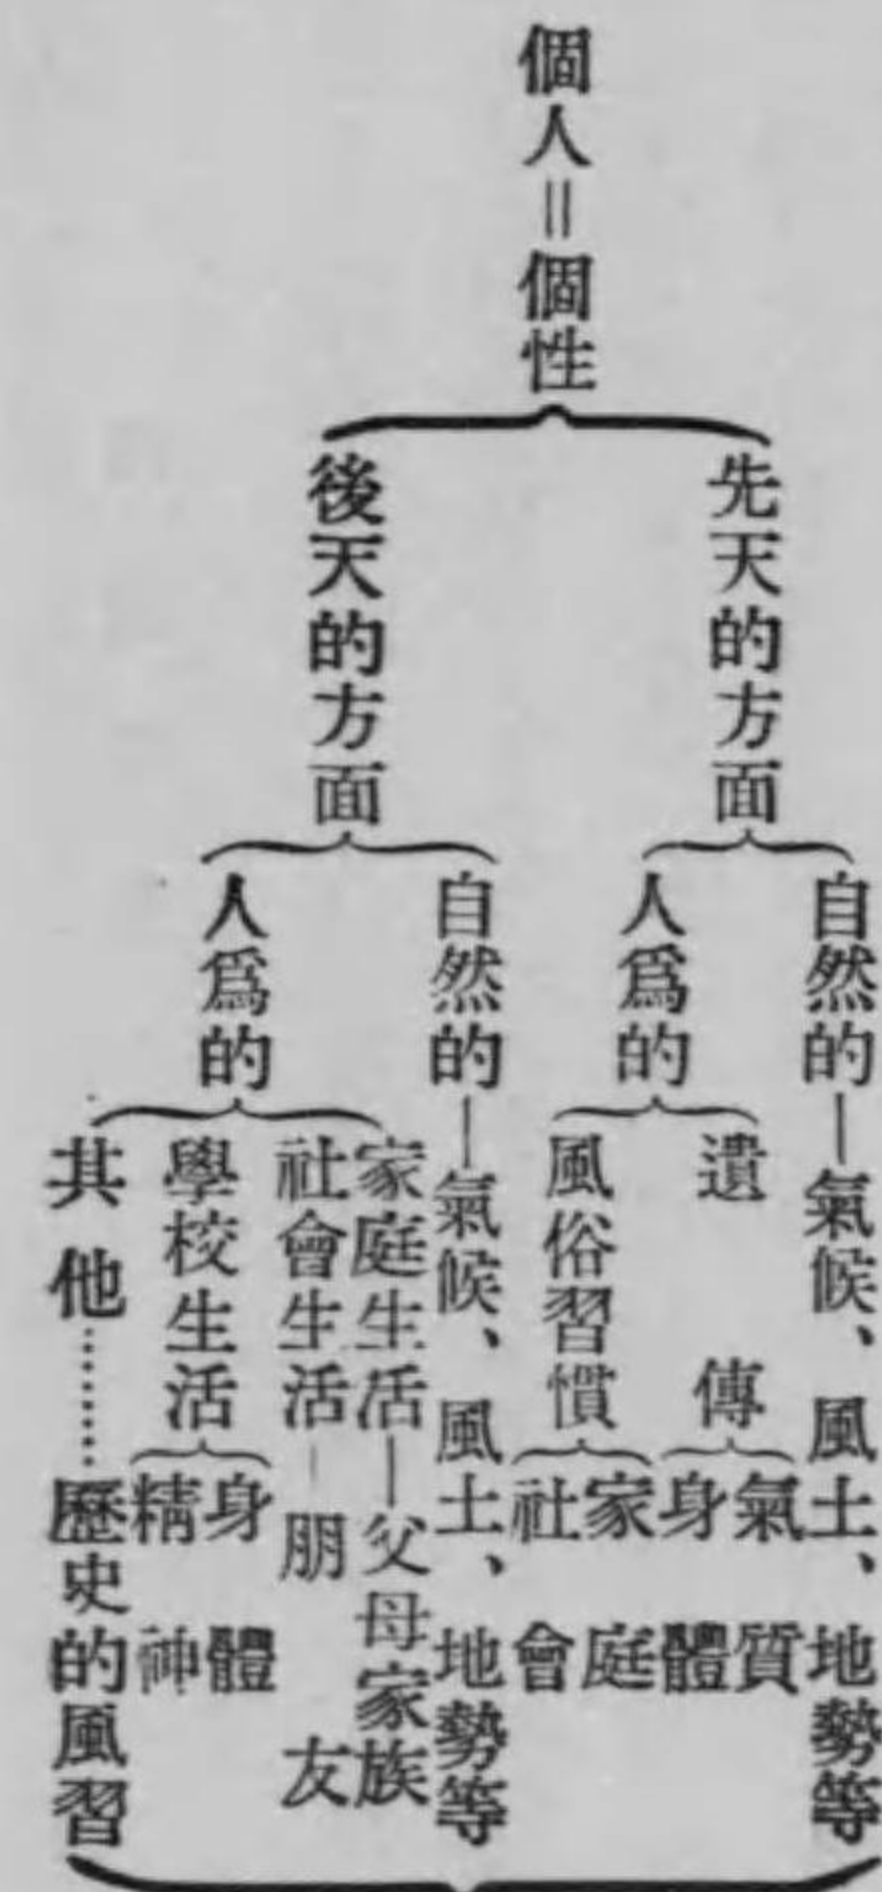 個人=個性
先天的方面
自然的—氣候、風土、地勢等
人爲的
遺傳
氣質
身體
風俗習慣
家庭
社會
後天的方面
自然的—氣候、風土、地勢等
人爲的
家庭生活—父母家族
社會生活—朋友
學校生活
身體
精神
其他………歷史的風習